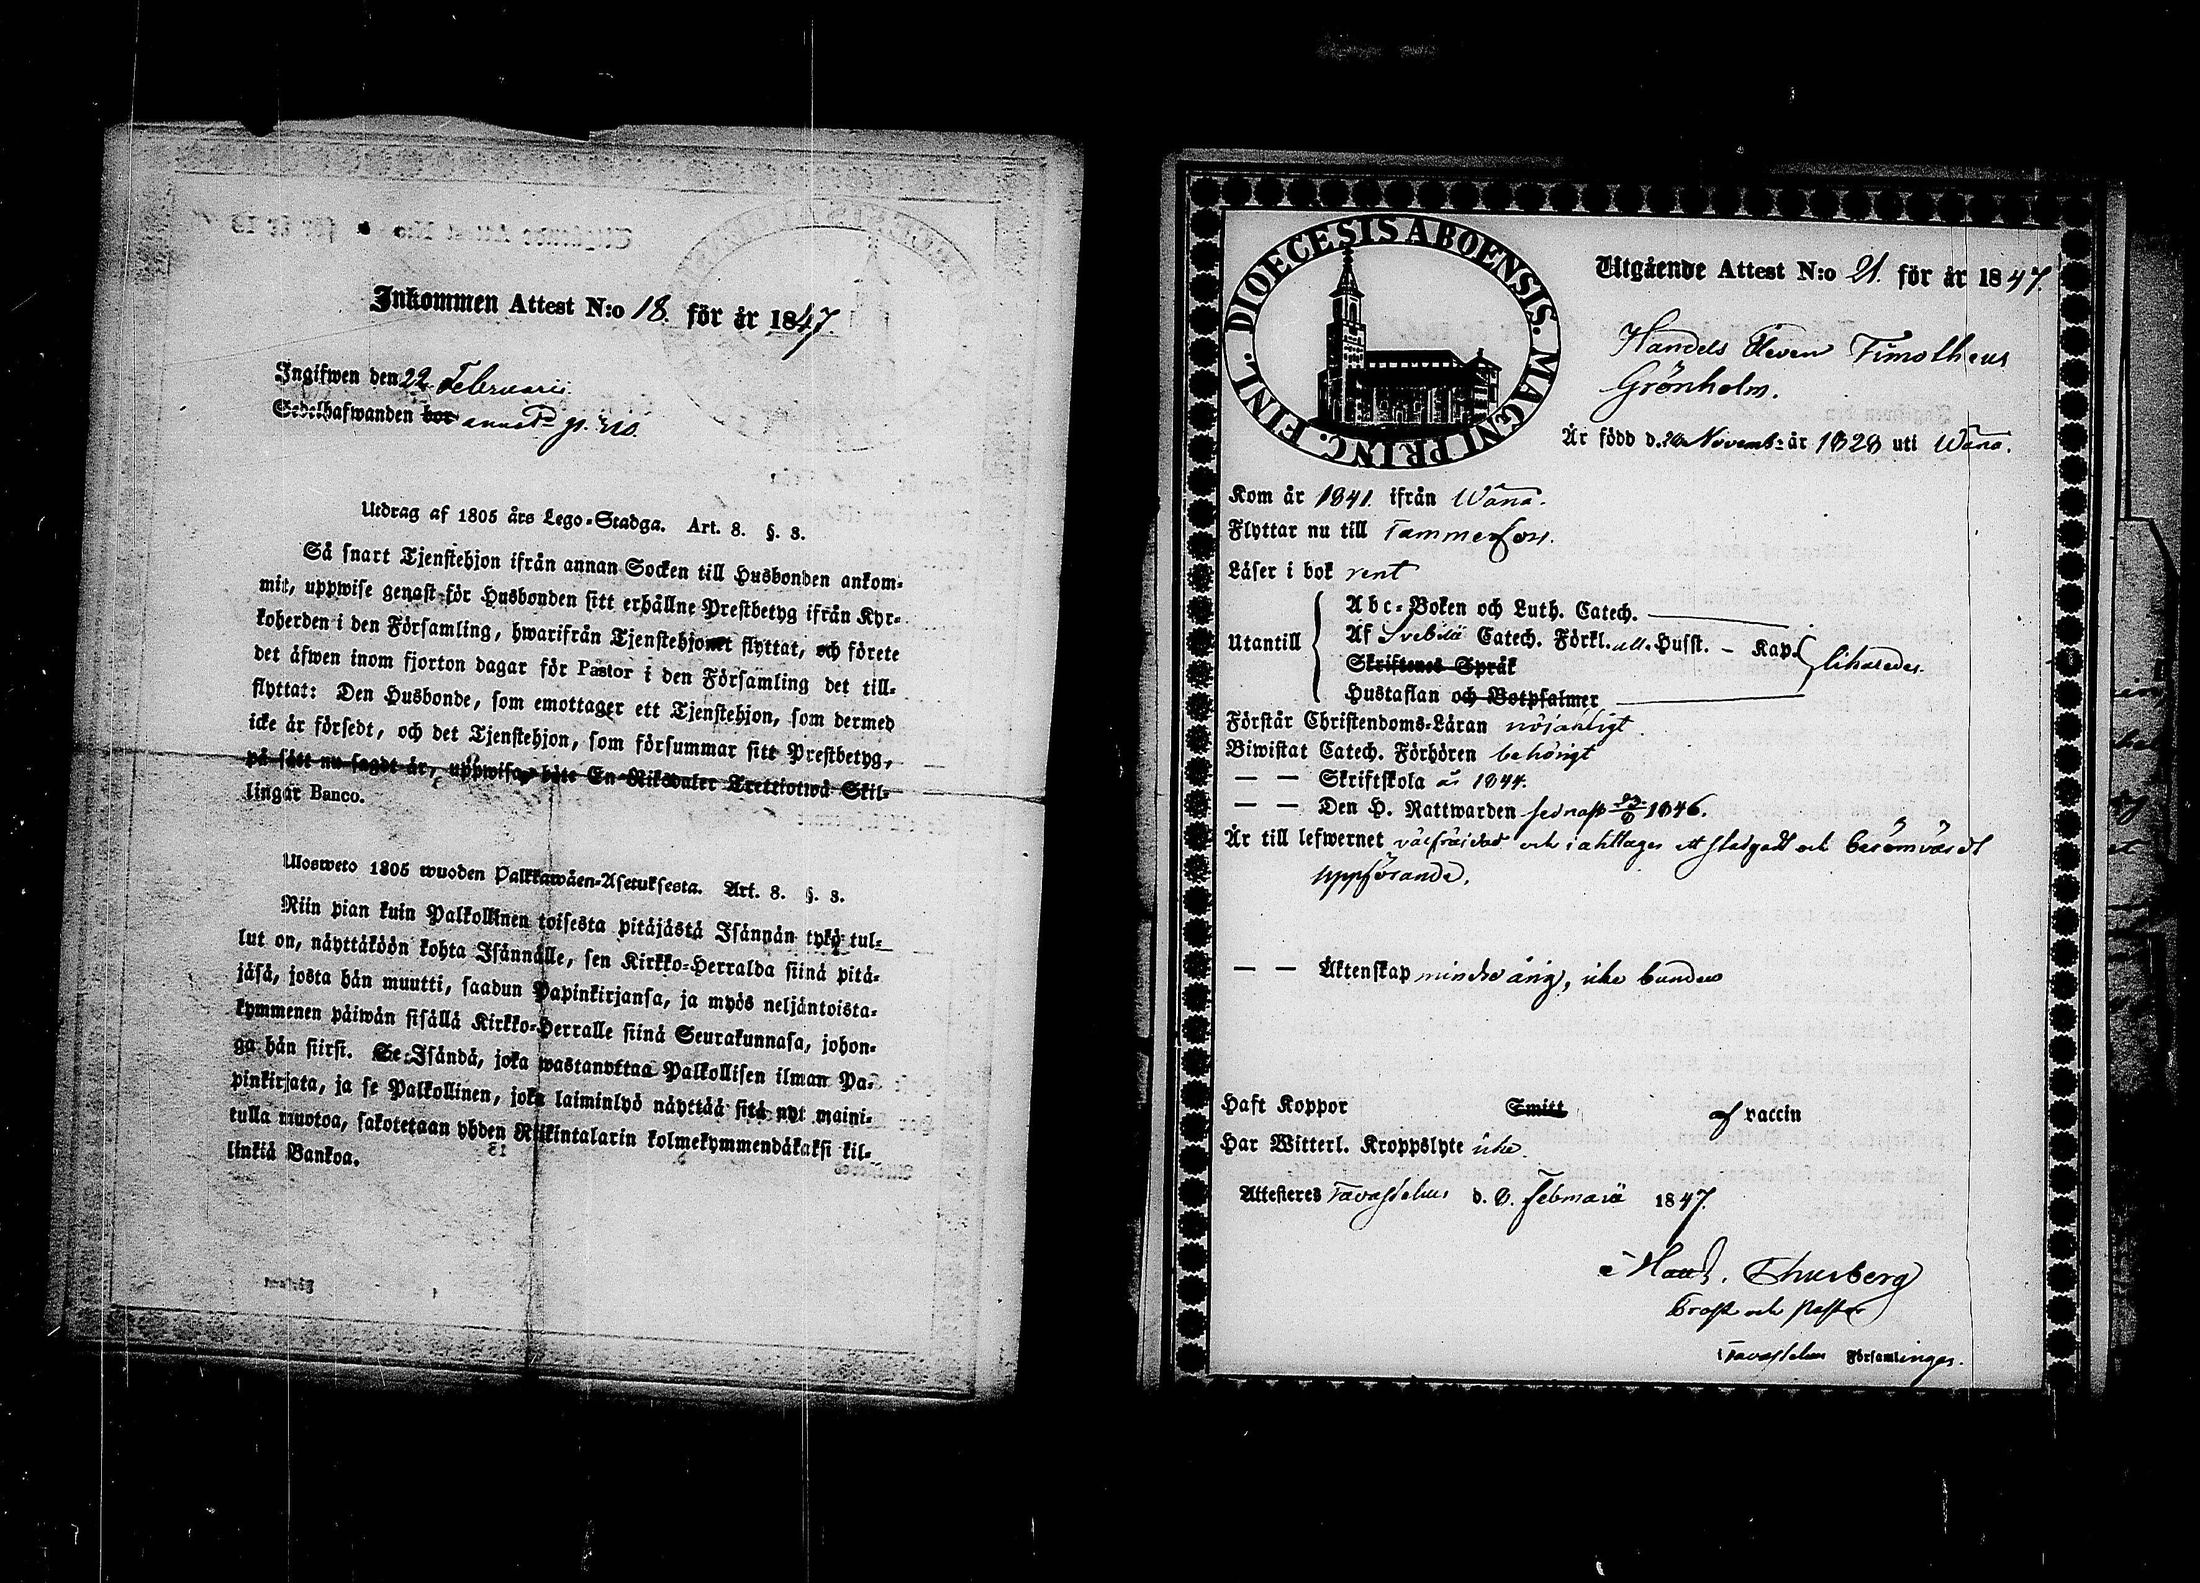 Inkommen Attest N:o 18. för år 1847.
Ingifwen den 22 Februarii.
Sedelhafwanden bor
Utdrag af 1805 års Lego-Stadga. Art. 8. §. 3.
Så snart Tjenstehjon ifrån annan Socken till Husbonden ankom-
mit, uppwise genast för Husbonden sitt erhållne Prestbetyg ifrån Kyr-
koherden i den Församling, hwarifrån Tjenstehjonet flyttat, och förete
det äfwen inom fjorton dagar för Pastor i den Församling det till-
flyttat: Den Husbonde, som emottager ett Tjenstehjon, som dermed
icke är försedt, och det Tjenstehjon, som försummar sitt Prestbetyg,
på sätt nu sagdt är, uppwisa, böte En Riksdaler Trettiotwå Skil-
lingar Banco.
Ulosweto 1805 wuoden Palkkawäen-Asetuksesta. Art. 8. §. 3.
Niin pian kuin Palkollinen toisesta pitäjästä Isännän tykö tul-
lut on, näyttäköön kohta Isännälle, sen Kirkko-Herralda siinä pitä-
jäsä, josta hän muutti, saadun Papinkirjansa, ja myös neljäntoista-
kymmenen päiwän sisällä Kirkko-Herralle siinä Seurakunnasa, johon-
ga hän siirsi. Se Isändä, joka wastanottaa Palkollisen ilman Pa-
pinkirjata, ja se Palkollinen, joka laiminlyö näyttää sitä nyt maini-
tulla muotoa, sakotetaan yhden Riikintalarin kolmekymmendäkaksi kil-
linkiä Bankoa.
FINL. DIOECESIS ABOENSIS. MAGNI PRINC.
Utgående Attest N:o 21. för år 1847.
Handels Eleven Timotheus
Grönholm.
Är född d. Novemb: år 1828 uti Wånå.
Kom år 1841. ifrån Wånå.
Flyttar nu till Tammerfors.
Läser i bok rent
Utantill
Abc-Boken och Luth. Catech.
Af Svebilii Catech. Förkl. all. Husst. – Kap.
likaledes.
Skriftenes Språk
Hustaflan och Botpsalmer
Förstår Christendoms-Läran nöjaktigt.
Biwistat Catech. Förhören behörigt
— — Skriftskola år 1844.
— — Den H. Nattwarden sednast 1846.
Är till lefwernet välfräjdad och iakttager ett stadgadt och berömvärdt
uppförande.
— — Äktenskap minderårig, icke bunden
Haft Koppor Smitt af vaccin
Har Witterl. Kroppslyte icke.
Attesteres Tavastehus d. 8. Februarii 1847.
Thusberg
Prost och Pastor
i Tavastehus Församlingar.